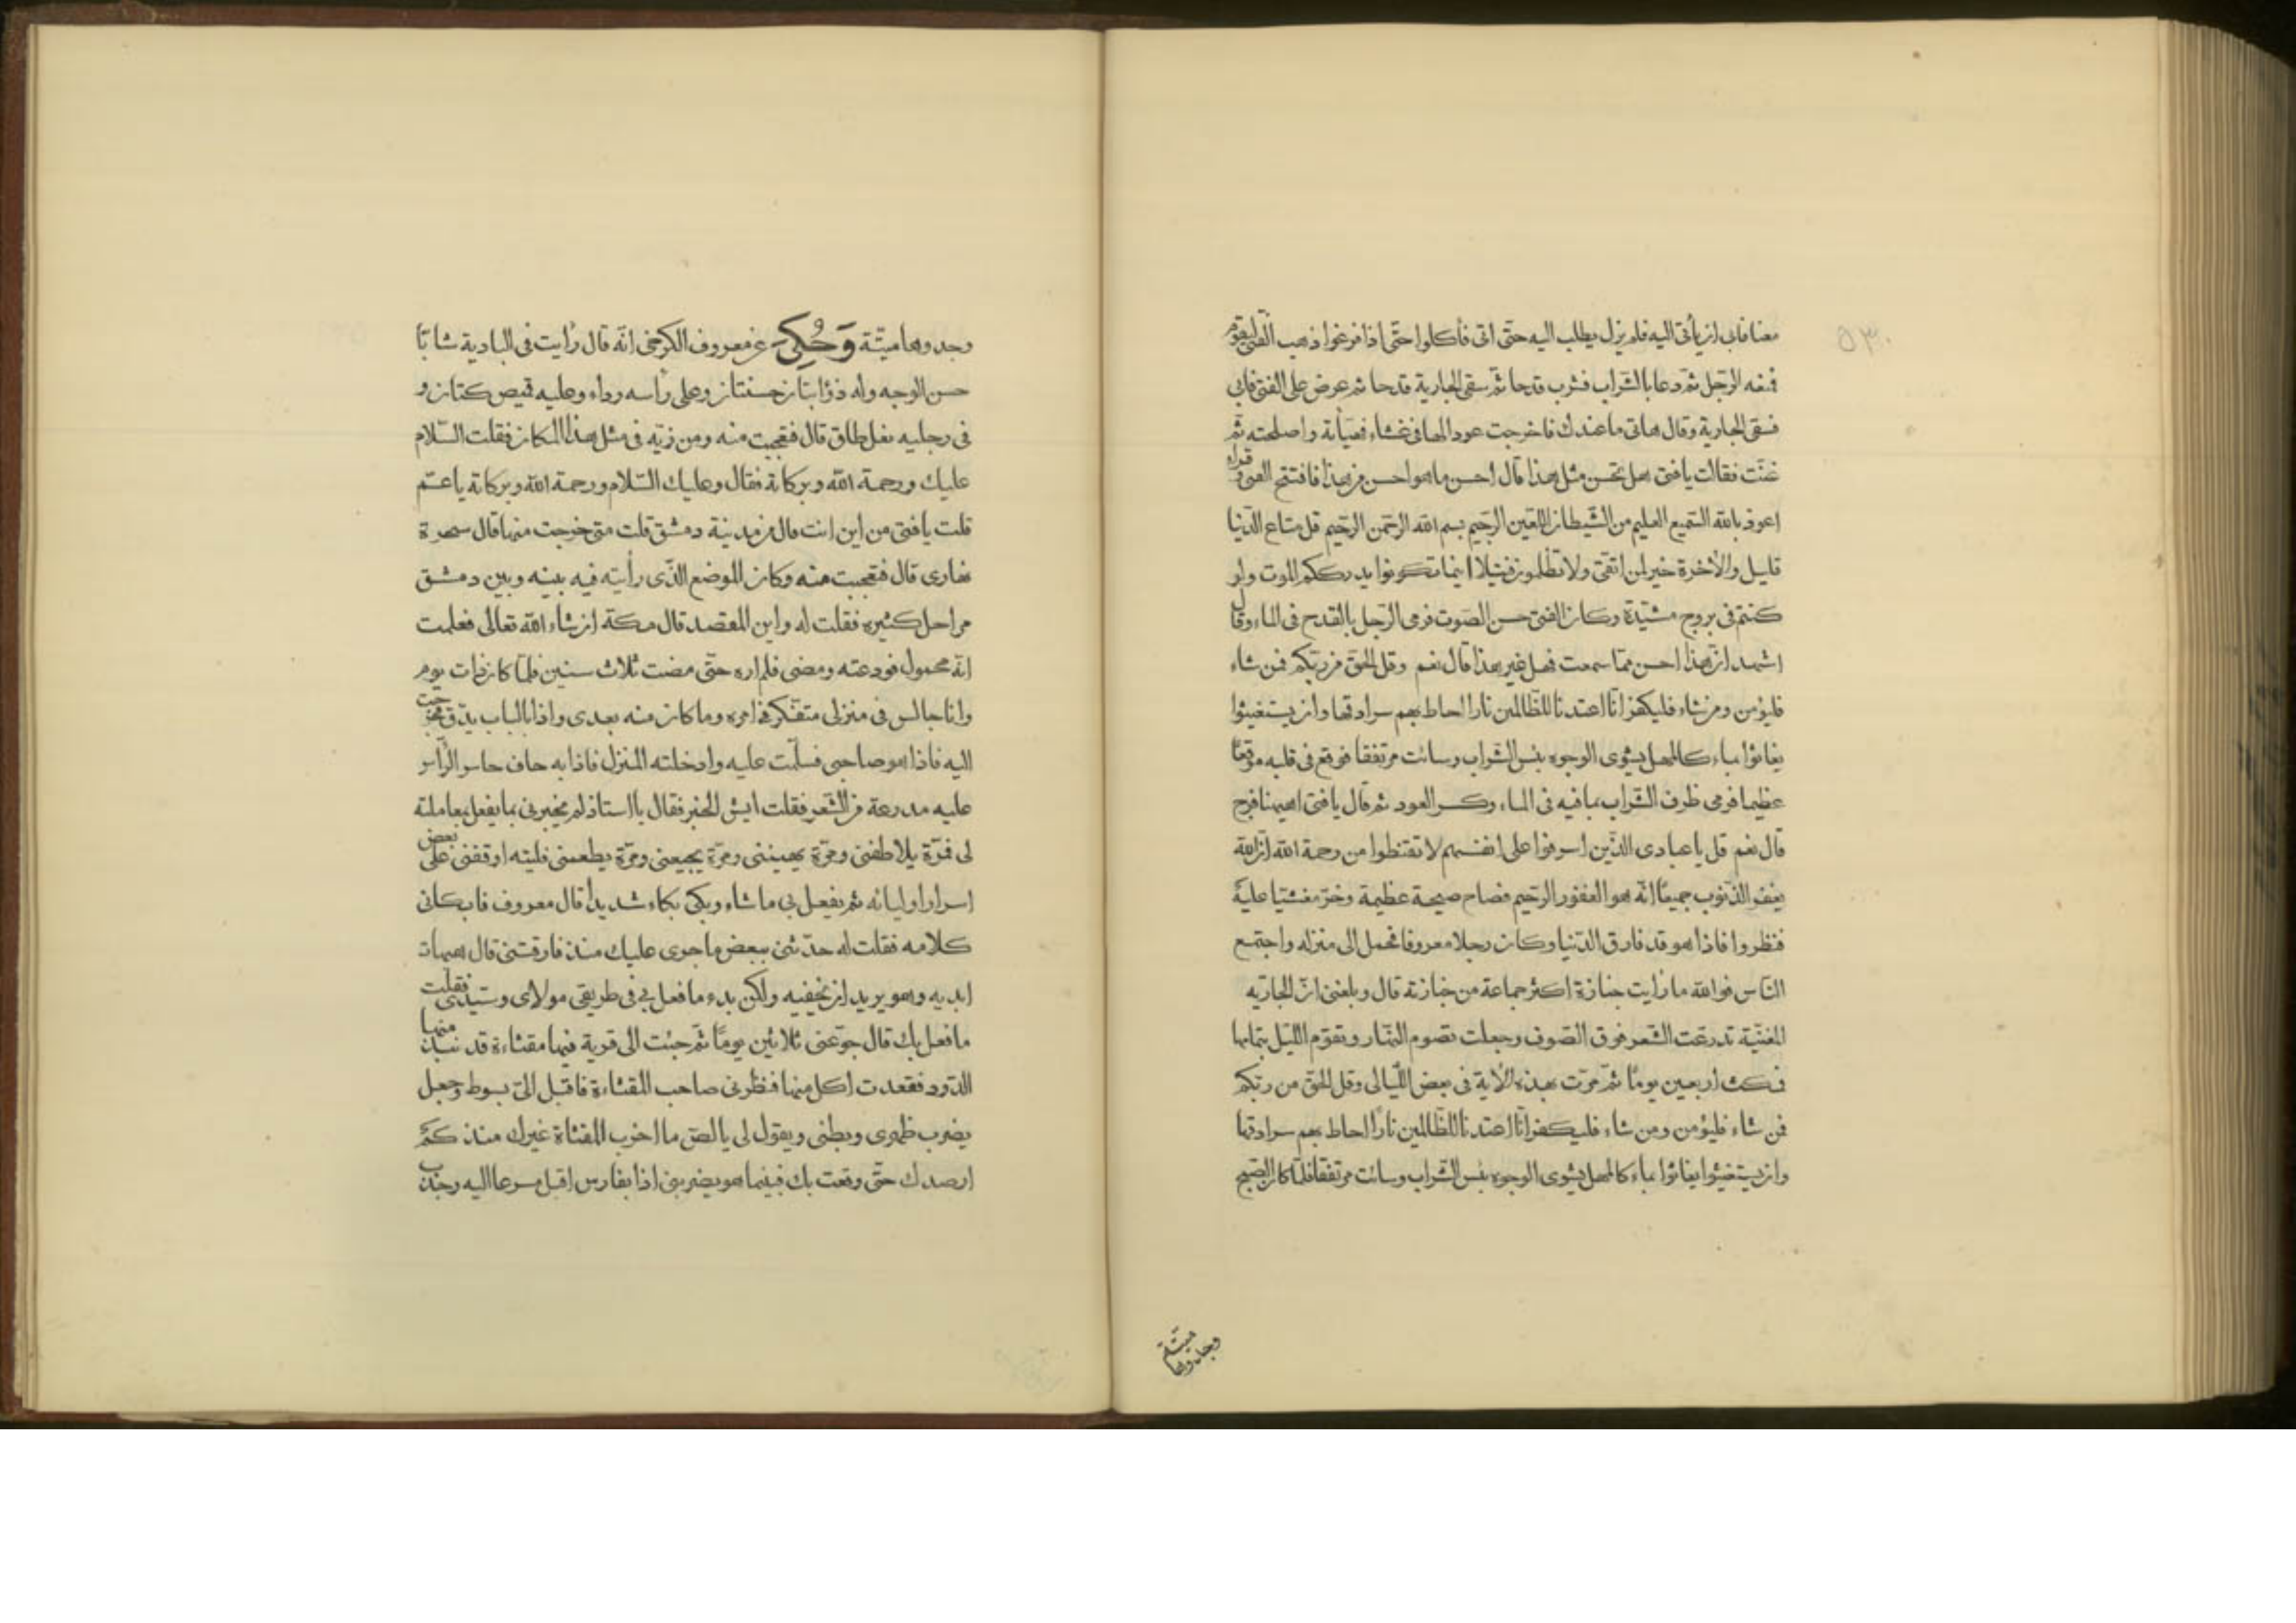 ٥٣٠
معنا فابى ان يأتى اليه فلم يزل يطلب اليه حتّى اتى فأكلوا حتّى اذا فرغوا ذهب الفتى ليقوم
فمنعه الرّجل ثمّ دعا بالشّراب فشرب قدحا ثمّ سقى الجارية قدحا ثم عرض على الفتى فابى
فسقى الجارية وقال هاتى ما عندك فاخرجت عودا لها فى غشاء فهيّأته واصلحته ثمّ
غنّت فقالت يا فتى هل تحسن مثل هذا قال احسن ما هو احسن من هذا فافتتح الفتى وقراء
اعوذ بالله السّميع العليم من الشّيطان اللّعين الرّجيم بسم الله الرّحمن الرّحيم قل متاع الدّنيا
قليل والأخرة خير لمن اتقى ولا تظلمون فتيلا اينما تكونوا يدرككم الموت ولو
كنتم فى بروج مشيّدة وكان الفتى حسن الصّوت فرمى الرّجل بالقدح فى الماء وقال
اشهد انّ هذا احسن ممّا سمعت فهل غير هذا قال نعم وقل الحقّ من ربّكم فمن شاء
فليؤمن ومن شاء فليكفر انّا اعتدنا للظّالمين نارا احاط بهم سرادقها وان يستغيثوا
يغاثوا بماء كالمهل يشوى الوجوه بئس الشّراب وساءت مرتفقا فوقع فى قلبه موقعًا
عظيما فرمى ظرف الشّراب بما فيه فى الماء وكسر العود ثم قال يا فتى اههنا فرج
قال نعم قل يا عبادى الذّين اسرفوا على انفسهم لا تقنطوا من رحمة الله انّ الله
يغفر الذّنوب جميعًا انّه هو الغفور الرّحيم فصاح صيحة عظيمة وخرّ مغشيّا عليه
فنظروا فاذا هو قد فارق الدّنيا وكان رجلا معروفا فحمل الى منزله واجتمع
النّاس فوالله ما رأيت جنازة اكثر جماعة من جنازته قال وبلغنى انّ الجاريه
المغنيّة تدرعت الشّعر فوق الصّوف وجعلت تصوم النّهار وتقوم اللّيل بتمامها
فمكث اربعين يومًا ثمّ مرّت بهذه الأية فى بعض اللّيالى وقل الحقّ من ربّكم
فمن شاء فليؤمن ومن شاء فليكفر انّا اعتدنا للظّالمين نارًا احاط بهم سرادقها
وان يستغيثوا يغاثوا بماء كالمهل يشوى الوجوه بئس الشّراب وساءت مرتفقا فلمّا كان الصّبح
وجدوها
ميّتة
وجدوها ميّتة وَحُكِىَ عن معروف الكرخى انّه قال رأيت فى البادية شابّا
حسن الوجه وله ذؤابتان حسنتان وعلى رأسه رداء وعليه قميص كتان و
فى رجليه نعل طاق قال فتعجبت منه ومن زيّه فى مثل هذا المكان فقلت السّلام
عليك ورحمة الله وبركاته فقال وعليك السّلام ورحمة الله وبركاته يا عمّ
قلت يا فتى من اين انت قال من مدينة دمشق قلت متى خرجت منها قال ضحوة
نهارى قال فتعجبت منه وكان الموضع الذّى رأيته فيه بينه وبين دمشق
مراحل كثيره فقلت له واين المقصد قال مكّة ان شاء الله تعالى فعلمت
انّه محمول فودعته ومضى فلم اره حتّى مضت ثلاث سنين فلمّا كان ذات يوم
وانا جالس فى منزلى متفكر فى امره وما كان منه بعدى واذا بالباب يدّق فخرجت
اليه فاذا هو صاحبى فسلّمت عليه وادخلته المنزل فاذا به حاف حاسر الرّأس
عليه مدرعة من الشّعر فقلت ايش الخبر فقال يا استاذ لم يخبرنى بما يفعل بمعاملته
لى فمرّة يلاطفنى ومرّة يهيننى ومرّة يجيعنى ومرّة يطعمنى فليته اوقفنى على بعض
اسرار اوليائه ثم يفعل بى ما شاء وبكى بكاء شديدا قال معروف فابكانى
كلامه فقلت له حدّثنى ببعض ما جرى عليك منذ فارقتنى قال هيهات
ابديه وهو يريد ان نخفيه ولكن بدء ما فعل بى فى طريقى مولاى وسيّدى فقلت
ما فعل بك قال جوّعنى ثلاثين يومًا ثمّ جئت الى قرية فيها مقثاءة قد نبذ منها
الدّود فقعدت اكل منها فنظرنى صاحب المقثاءة فاقبل الىّ بسوط وجعل
يضرب ظهرى وبطنى ويقول لى يا لصّ ما اخرب المقثاة غيرك منذ كم
ارصدك حتّى وقعت بك فبينما هو يضربنى اذا بفارس اقبل مسرعا اليه وجذب